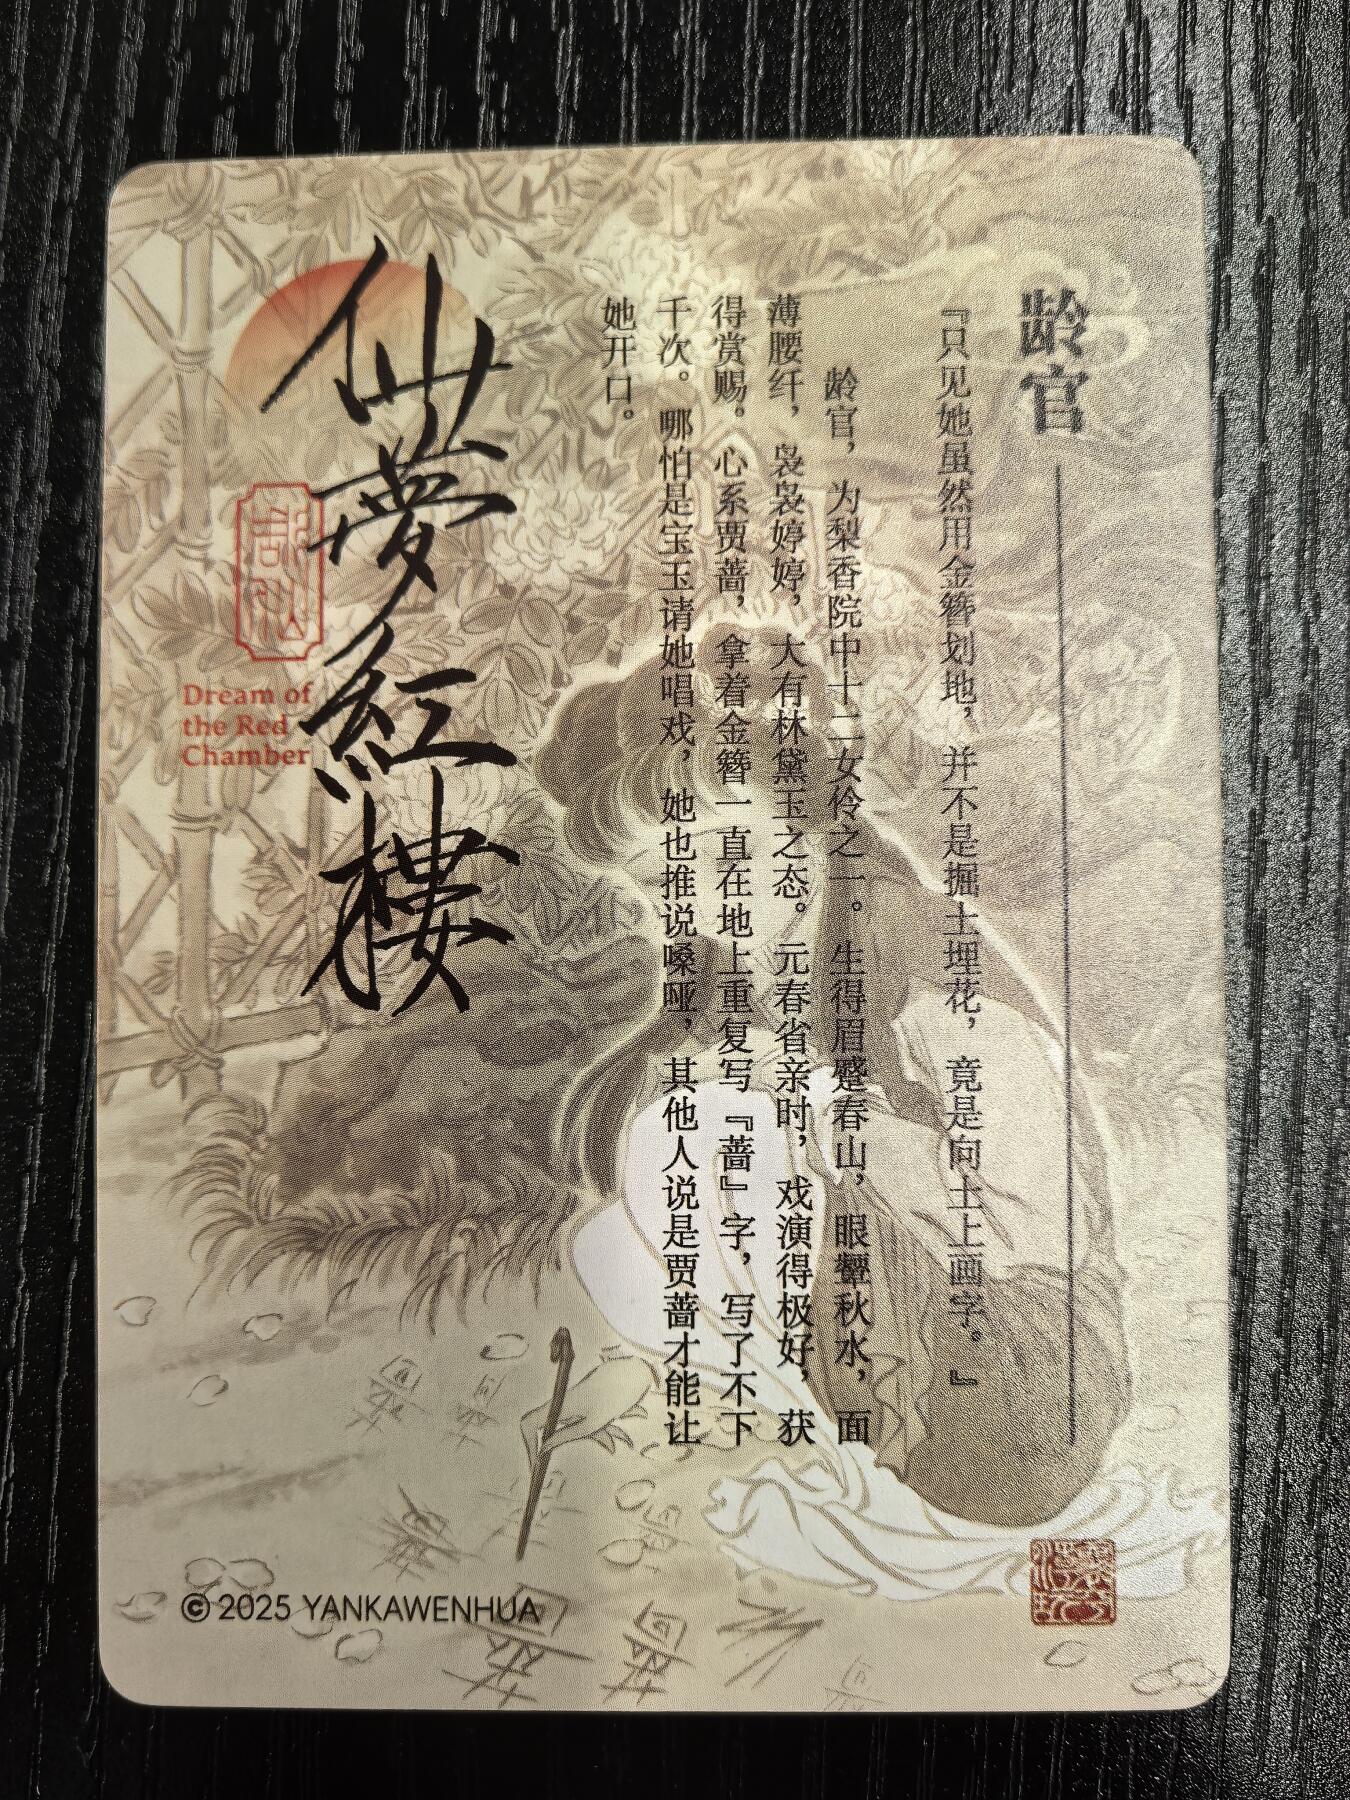 龄官
『只见她虽然用金簪划地，并不是掘土埋花，竟是向土上画字。』
龄官，为梨香院中十二女伶之一。生得眉蹙春山，眼颦秋水，面
薄腰纤，袅袅婷婷，大有林黛玉之态。元春省亲时，戏演得极好，获
得赏赐。心系贾蔷，拿着金簪一直在地上重复写『蔷』字，写了不下
千次。哪怕是宝玉请她唱戏，她也推说嗓哑，其他人说是贾蔷才能让
她开口。
仙夢紅樓
Dream of
the Red
Chamber
© 2025 YANKAWENHUA